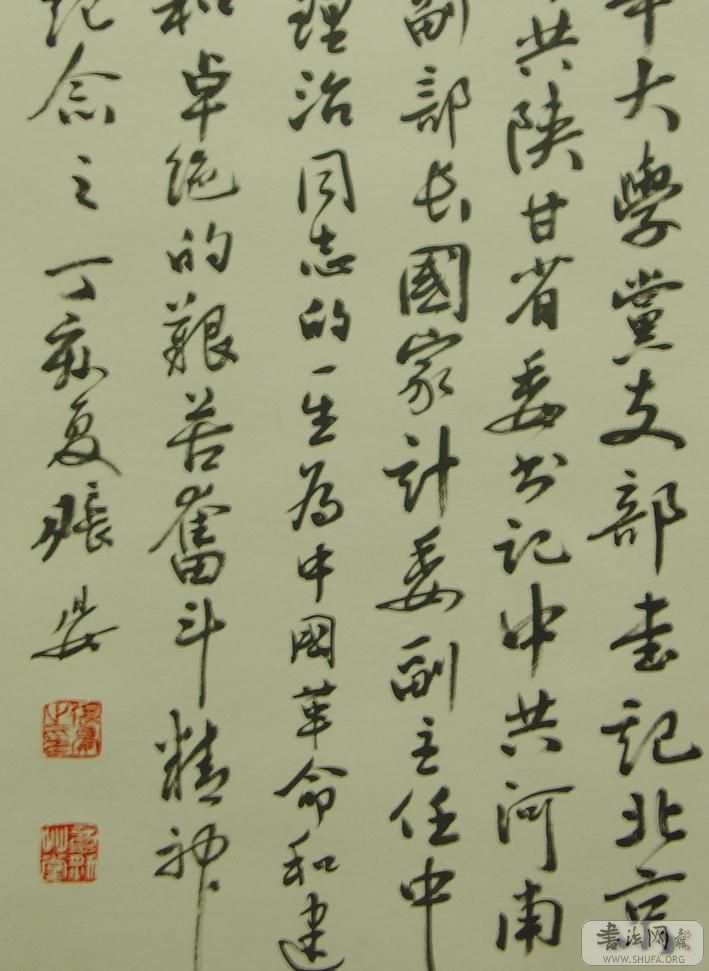 大學黨支部書記北京
共陝甘省委书記中共河南
副部長國家計委副主任中
理治同志的一生為中國革命和建
和卓绝的艱苦奮斗精神
紀念之 丁亥夏張
書法网
WWW.SHUFA.ORG